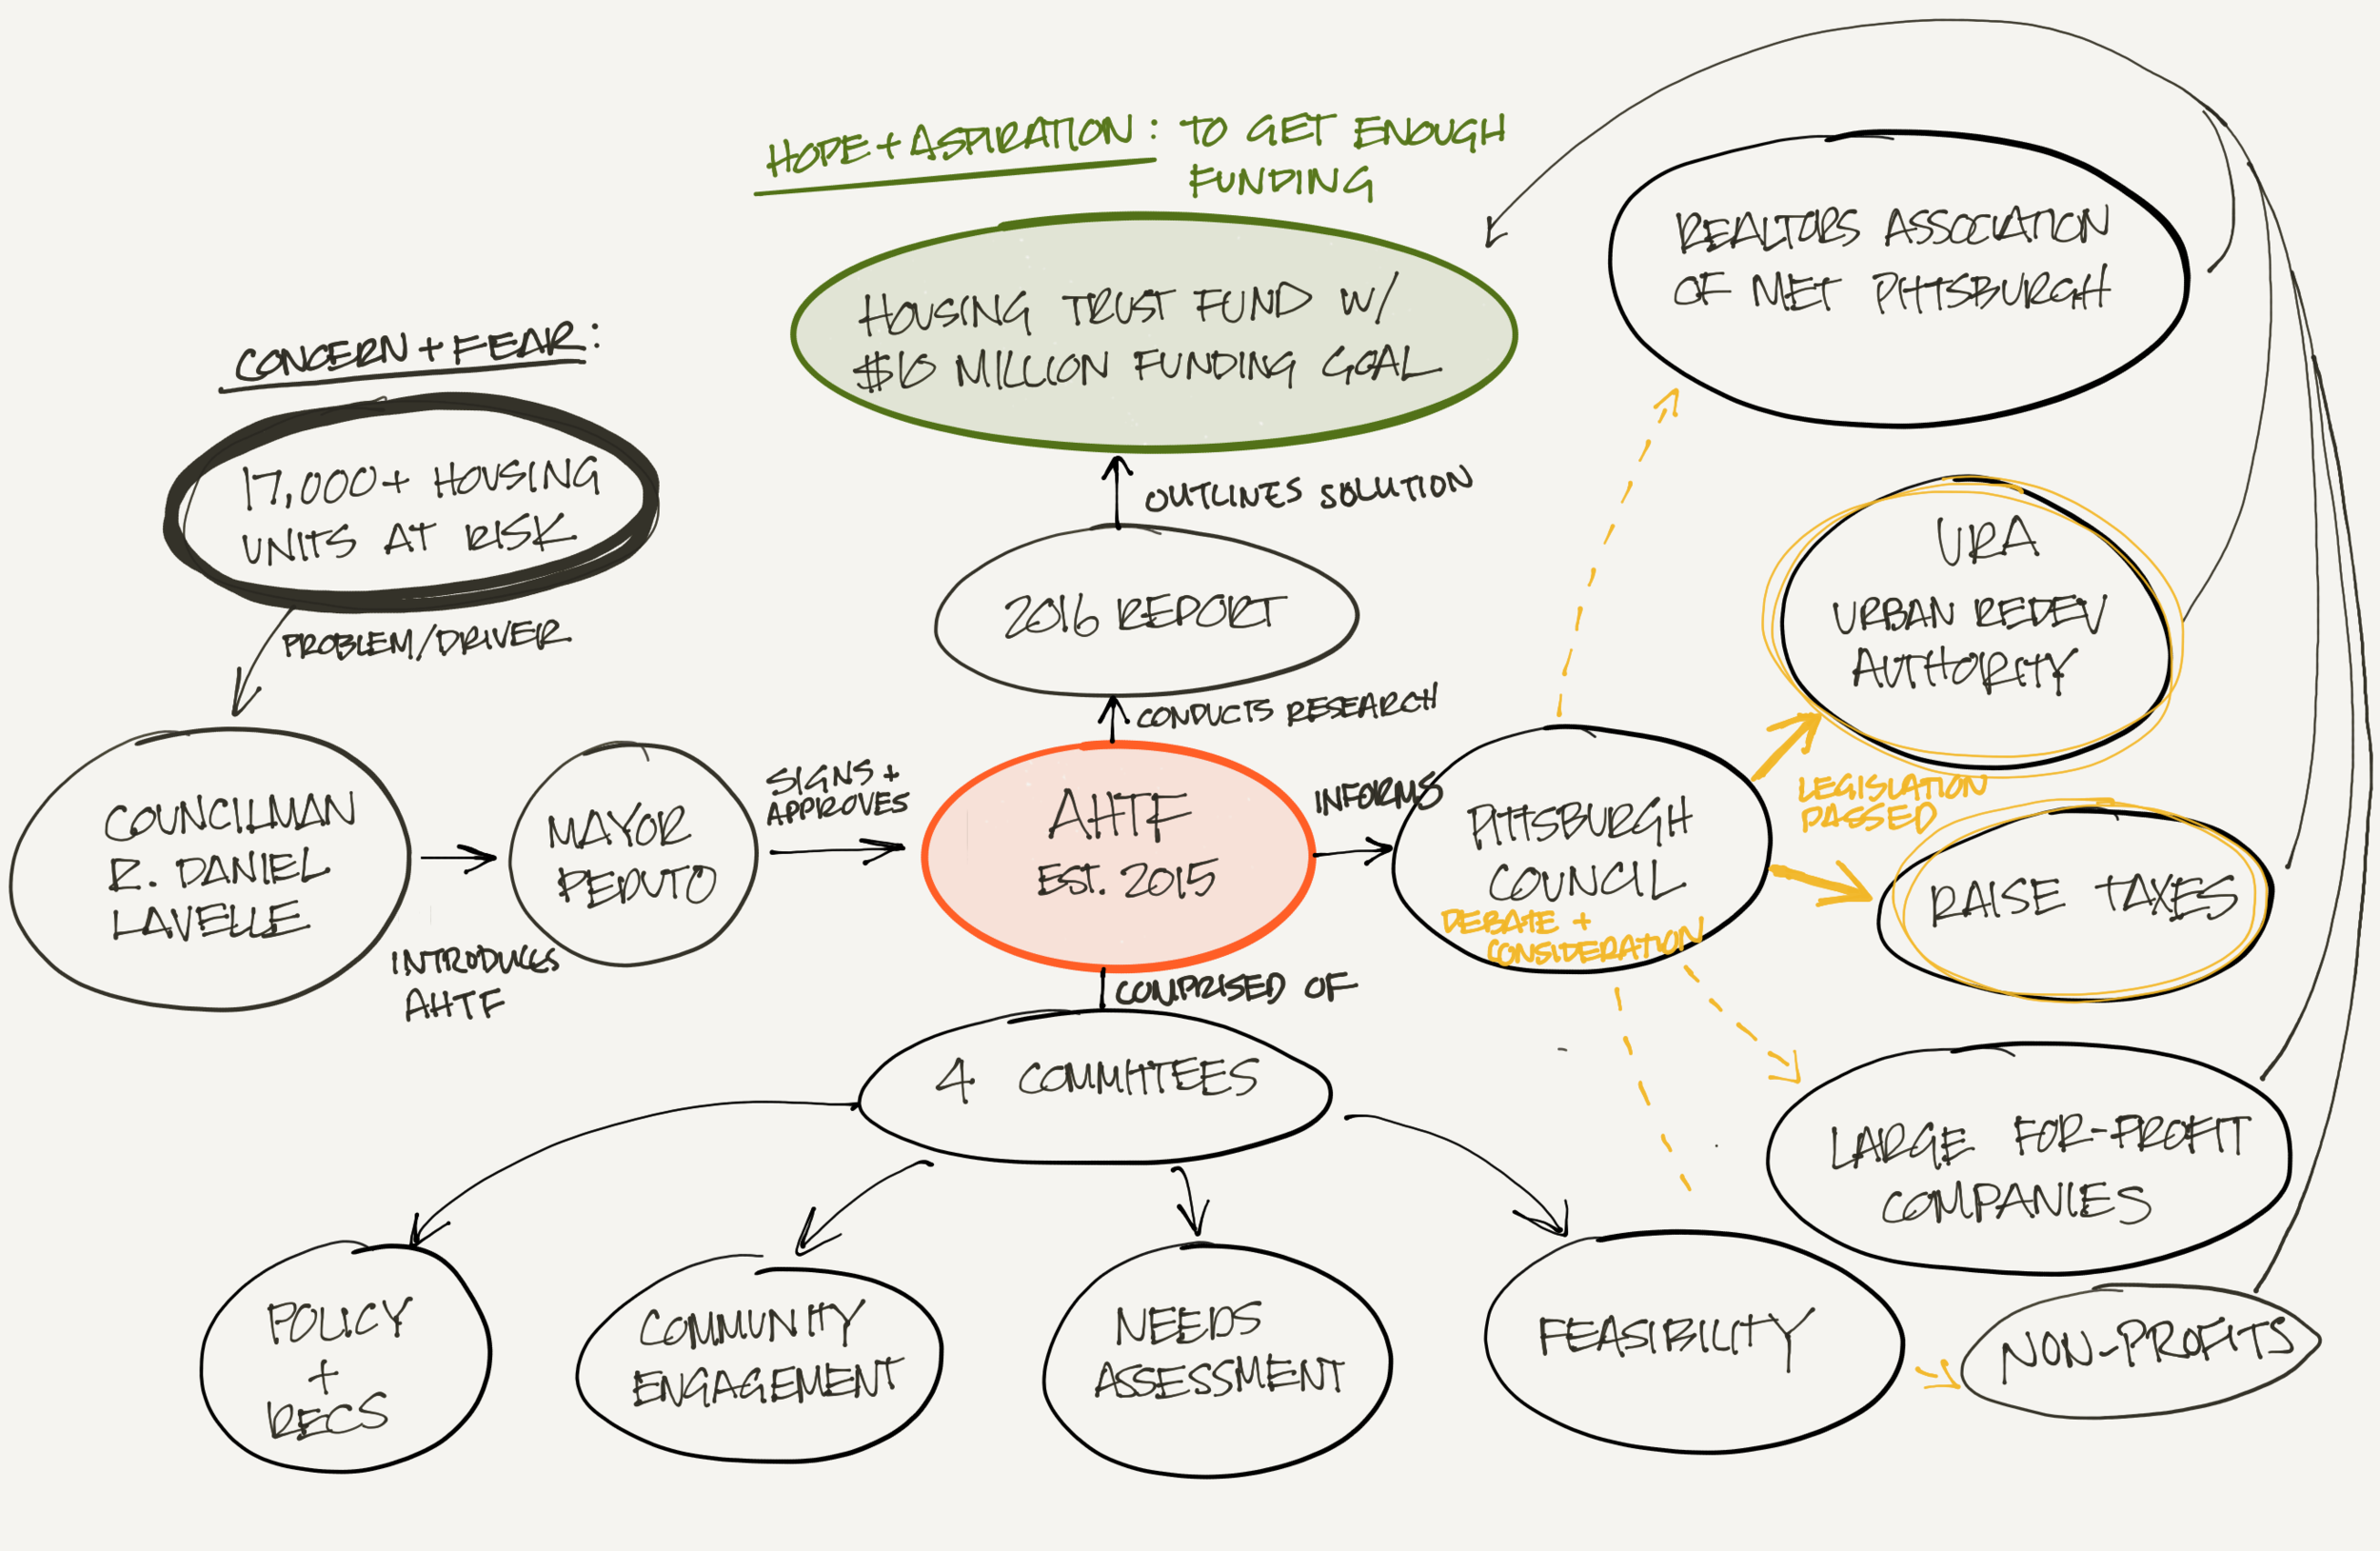 HOPE + ASPIRATION: TO GET ENOUGH
FUNDING
HOUSING TRUST FUND W/
$10 MILLION FUNDING GOAL
CONCERN + FEAR:
17,000+ HOUSING
UNITS AT RISK
PROBLEM/DRIVER
COUNCILMAN
R. DANIEL
LAVELLE
INTRODUCES
AHTF
MAYOR
PEDUTO
SIGNS +
APPROVES
AHTF
EST. 2015
CONDUCTS RESEARCH
2016 REPORT
OUTLINES SOLUTION
INFORMS
PITTSBURGH
COUNCIL
DEBATE +
CONSIDERATION
LEGISLATION
PASSED
REALTORS ASSOCIATION
OF MET PITTSBURGH
URA
URBAN REDEV
AUTHORITY
RAISE TAXES
LARGE FOR-PROFIT
COMPANIES
NON-PROFITS
COMPRISED OF
4 COMMITTEES
POLICY
+
RECS
COMMUNITY
ENGAGEMENT
NEEDS
ASSESSMENT
FEASIBILITY